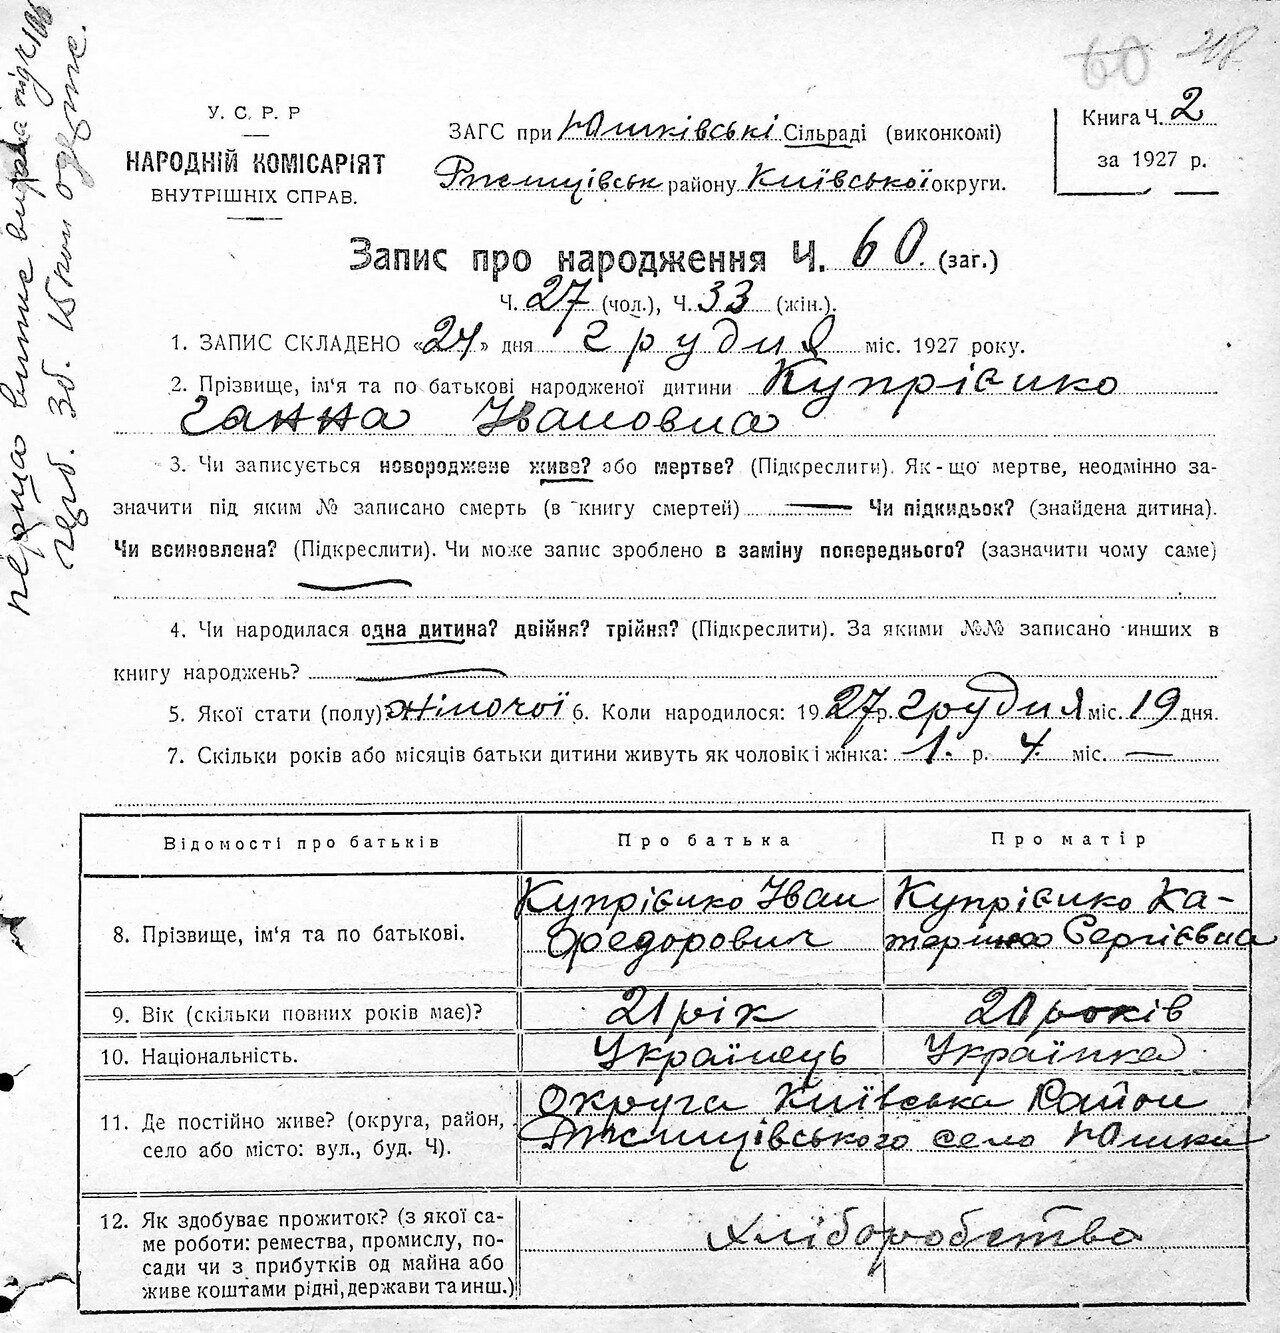 60 218
У. С. Р. Р
НАРОДНІЙ КОМІСАРІЯТ
ВНУТРІШНІХ СПРАВ.
ЗАГС при Юшківські Сільраді (виконкомі)
Ржищівськ району Київської округи.
Книга Ч. 2
за 1927 р.
Запис про народження Ч. 60. (заг.)
Ч. 27 (чол.), Ч. 33 (жін.).
1. ЗАПИС СКЛАДЕНО «24» дня грудня міс. 1927 року.
2. Прізвище, ім'я та по батькові народженої дитини Купрієнко
Ганна Івановна
3. Чи записується новороджене живе? або мертве? (Підкреслити). Як-що мертве, неодмінно за-
значити під яким № записано смерть (в книгу смертей) — Чи підкидьок? (знайдена дитина).
Чи всиновлена? (Підкреслити). Чи може запис зроблено в заміну попереднього? (зазначити чому саме)
4. Чи народилася одна дитина? двійня? трійня? (Підкреслити). За якими №№ записано инших в
книгу народжень?
5. Якої стати (полу) жіночої 6. Коли народилося: 1927 р. грудня міс. 19 дня.
7. Скільки років або місяців батьки дитини живуть як чоловік і жінка: 1. р. 4. міс. —
Відомості про батьків Про батька Про матір
8. Прізвище, ім'я та по батькові. Купрієнко Іван Федорович Купрієнко Ка-терина Сергієвна
9. Вік (скільки повних років має)? 21 рік 20 років
10. Національність. Українець Українка
11. Де постійно живе? (округа, район, село або місто: вул., буд. Ч). Округа Київська Район
Ржищівського село Юшки
12. Як здобуває прожиток? (з якої са-
ме роботи: ремества, промислу, по-
сади чи з прибутків од майна або
живе коштами рідні, держави та инш.) Хліборобство
перша випис видана під ч 106
герб. зб. 15 коп одерж.